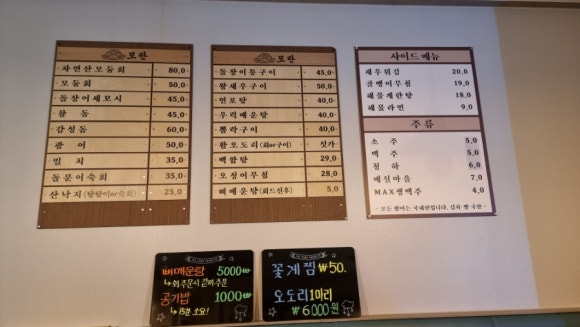 모란
자연산모둠회 80,0
모둠회 50,0
돌장어세꼬시 45,0
참돔 45,0
감성돔 60,0
광어 50,0
밀치 35,0
돌문어숙회 35,0
산낙치(탕탕이or숙회) 25,0
모란
돌장어통구이 45,0
왕새우구이 50,0
연포탕 40,0
우럭매운탕 40,0
뽈락구이 40,0
활오도리(회or구이) 싯가
백합탕 29,0
오징어무침 28,0
뼈매운탕(회드신후) 5,0
사이드 메뉴
새우튀김 20,0
골뱅이무침 19,0
해물계란탕 18,0
해물라면 9,0
주류
소주 5,0
맥주 5,0
청하 6,0
매실마을 7,0
MAX생맥주 4,0
- 모든 활어는 국내산입니다. 김치·쌀 국산 -
뼈매운탕 5000₩
↳회주문시 같이주문
공기밥 1000₩
↳15분 소요!
꽃게찜 ₩50.
오도리 1마리
₩6000원